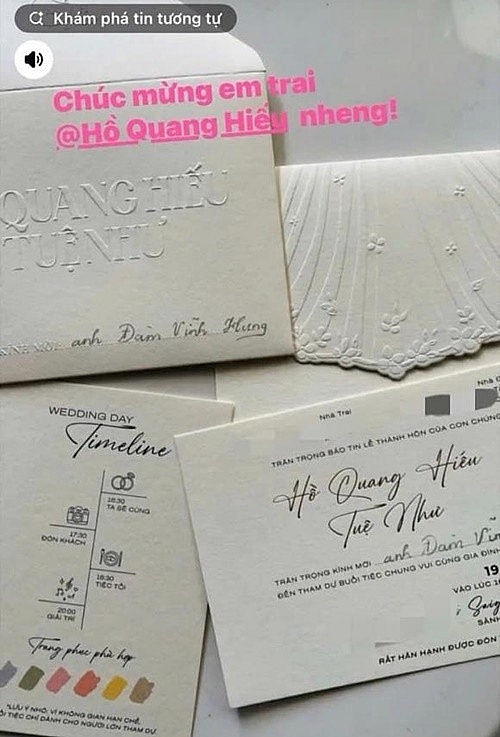 Khám phá tin tương tự
Chúc mừng em trai
@Hồ Quang Hiếu nheng!
QUANG HIẾU
TUỆ NHƯ
KÍNH MỜI anh Đàm Vĩnh Hưng
WEDDING DAY
Timeline
16:30
TA SẼ CÙNG
17:30
ĐÓN KHÁCH
18:30
TIỆC TỐI
20:00
GIẢI TRÍ
Trang phục phù hợp
*LƯU Ý NHỎ: VÌ KHÔNG GIAN HẠN CHẾ,
TIỆC CHỈ DÀNH CHO NGƯỜI LỚN THAM DỰ
Nhà Trai
Nhà
TRÂN TRỌNG BÁO TIN LỄ THÀNH HÔN CỦA CON CHÚNG
Hồ Quang Hiếu
Tuệ Như
TRÂN TRỌNG KÍNH MỜI anh Đàm
ĐẾN THAM DỰ BUỔI TIỆC CHUNG VUI CÙNG GIA ĐÌNH
19
VÀO LÚC
SẢNH
RẤT HÂN HẠNH ĐƯỢC ĐÓN